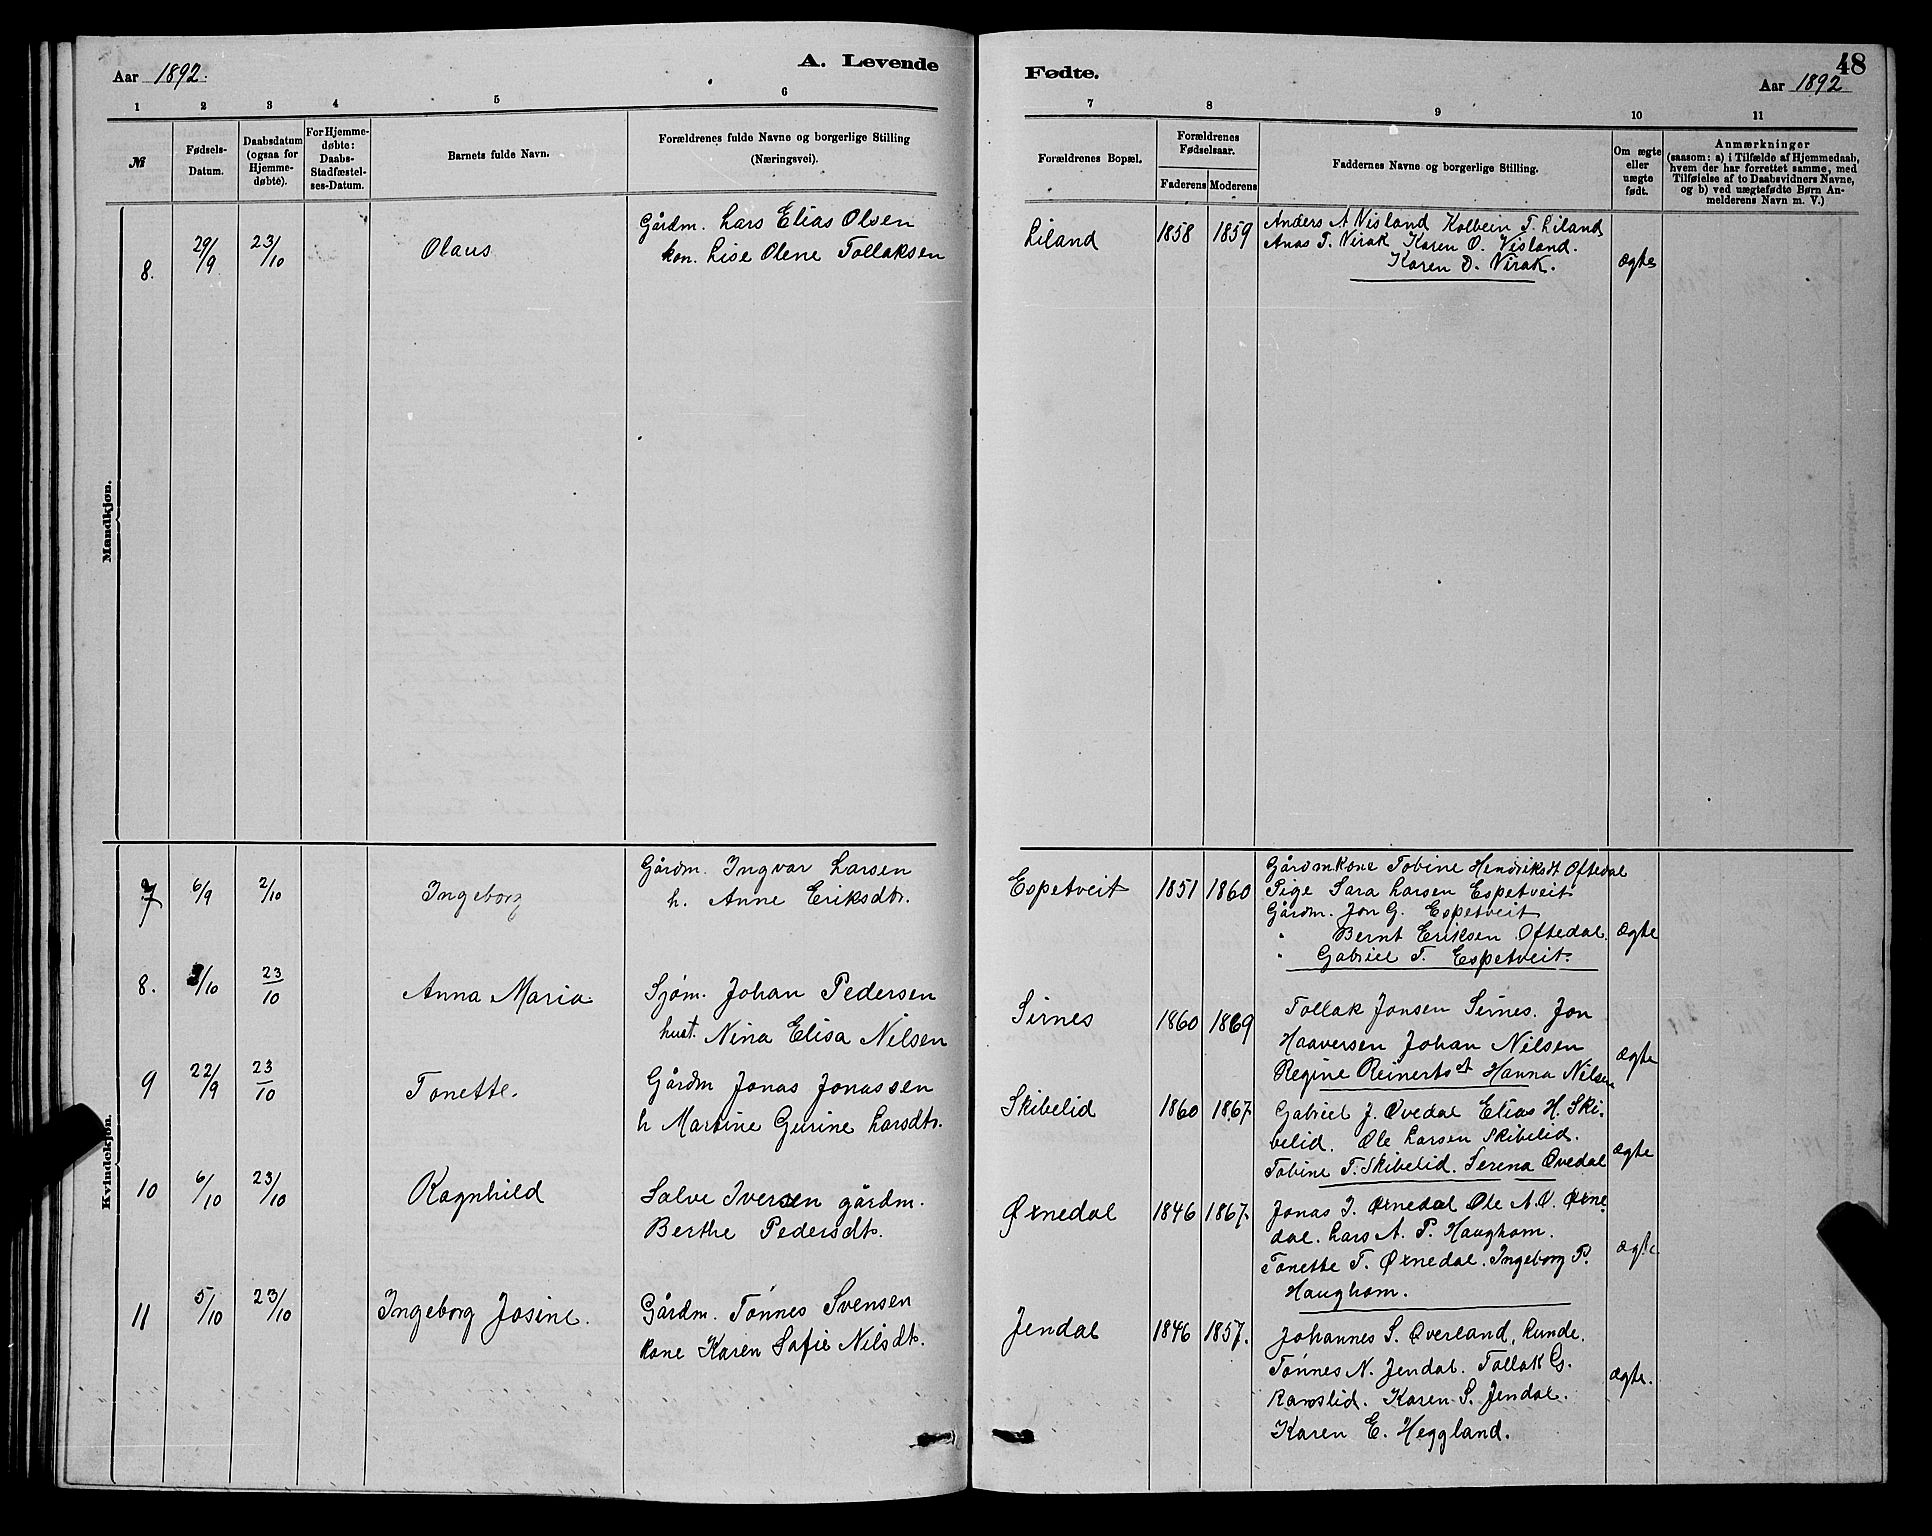 Aar 1892.
A. Levende
1 2 3 4 5 6
№
Fødsels-Datum.
Daabsdatum (ogsaa for Hjemme-døbte).
For Hjemme-døbte: Daabs-Stadfæstel-ses-Datum.
Barnets fulde Navn.
Forældrenes fulde Navne og borgerlige Stilling
(Næringsvei).
Mandkjøn.
8. 29/9 23/10 Olaus
Gårdm. Lars Elias Olsen
kon. Lise Olene Tollaksen
Kvindekjøn.
7 6/9 2/10 Ingeborg
Gårdm. Ingvar Larsen
h. Anne Eriksdtr.
8. 3/10 23/10 Anna Maria
Sjøm. Johan Pedersen
hust. Nina Elisa Nilsen
9 22/9 23/10 Tonette.
Gårdm Jonas Jonassen
h Martine Gurine Larsdtr.
10 6/10 23/10 Ragnhild
Salve Iversen gårdm.
Berthe Pedersdtr.
11 5/10 23/10 Ingeborg Josine.
Gårdm. Tønnes Svensen
kone Karen Sofie Nilsdtr.
Fødte.
48
Aar 1892
7 8 9 10 11
Forældrenes Bopæl.
Forældrenes Fødselsaar.
Faderens Moderens
Faddernes Navne og borgerlige Stilling.
Om ægte eller uægte født.
Anmærkninger
(saasom: a) i Tilfælde af Hjemmedaab,
hvem der har forrettet samme, med
Tilføielse af to Daabsvidners Navne,
og b) ved uægtefødte Børn An-
melderens Navn m. V.)
Liland 1858 1859
Anders A Nisland Kolbein T. Liland
Anas T. Virak Karen O. Visland.
Karen O. Virak.
ægte
Espetveit 1851 1860
Gårdmkone Tobine Hendriksdt Oftedal
Pige Sara Larsen Espetveit
Gårdm. Jon G. Espetveit
" Bernt Eriksen Oftedal.
" Gabriel T. Espetveit.
ægte
Sirnes 1860 1869
Tollak Jonsen Sirnes. Jon
Haaversen Johan Nilsen
Regine Reinertsdt Hanna Nilsen
ægte
Skibelid 1860 1867.
Gabriel J. Øvedal Elias H. Ski-
belid. Ole Larsen Skibelid.
Tobine T. Skibelid. Serena Øvedal
ægte
Øxnedal 1846 1867.
Jonas I. Øxnedal Ole A.O. Øxne-
dal. Lars A. P. Haughom.
Tonette T. Øxnedal. Ingeborg P.
Haughom.
ægte
Jendal 1846 1857.
Johannes S. Øverland, Lunde.
Tønnes N. Jendal. Tollak G.
Ramslid. Karen S. Jendal.
Karen E. Heggland.
ægte.